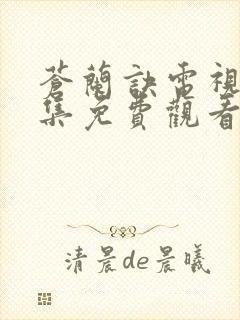 蒼蘭訣電視
集免費觀看
清晨de晨曦